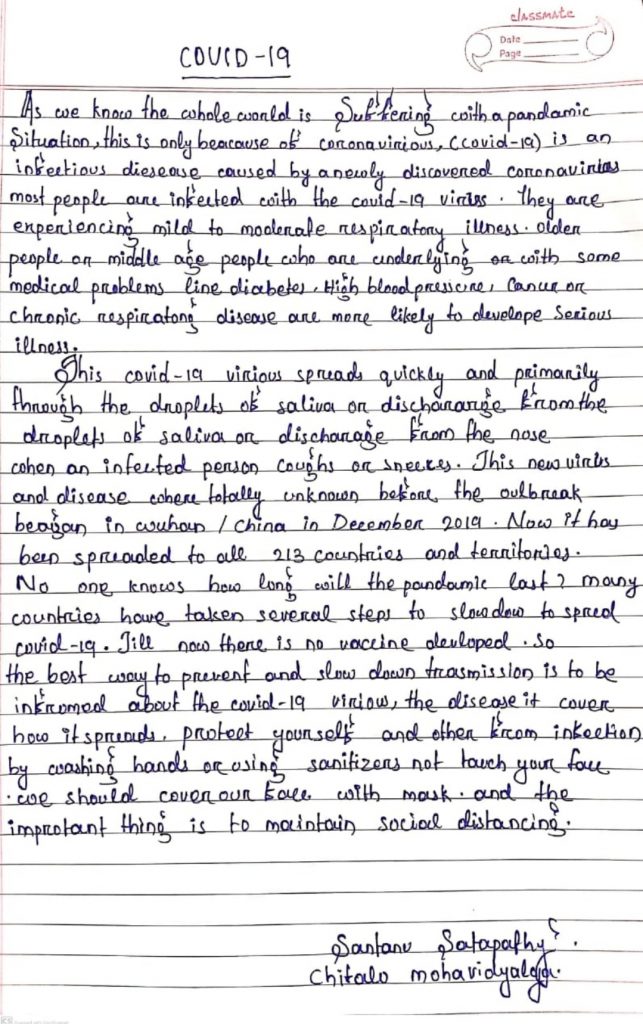 classmate
Date
Page
COVID-19
As we know the whole world is Suffering with a pandamic
Situation, this is only beacause of coronavirious, (covid-19) is an
infectious diesease caused by a newly discovered coronavirius
most people are infected with the covid-19 viriss. They are
experiencing mild to moderate respiratory illness. older
people or middle age people who are underlying or with some
medical problems line diabetes, High blood presicire, Cancer or
chronic respiratong disease are more likely to develope Serious
illness.
This covid-19 virious spreads quickly and primarily
through the droplets of saliva or dischararge from the
droplets of saliva or discharage from the nose
when an infected person coughs or sneezes. This new virus
and disease where totally unknown before the outbreak
beagan in wuhan / china in December 2019. Now it has
been spreaded to all 213 countries and territories.
No one knows how long will the pandamic last? many
countries have taken several steps to slow dow to spred
covid-19. Till now there is no vaccine devloped. so
the best way to prevent and slow down trasmission is to be
infromed about the covid-19 virious, the disease it cover
how it spreads. protect yourself and other from infection
by washing hands or using sanitizers not touch your face
. we should cover our face with mask. and the
improtant thing is to maintain social distancing.
Santanu Satapathy.
Chitalo mohavidyalaya.